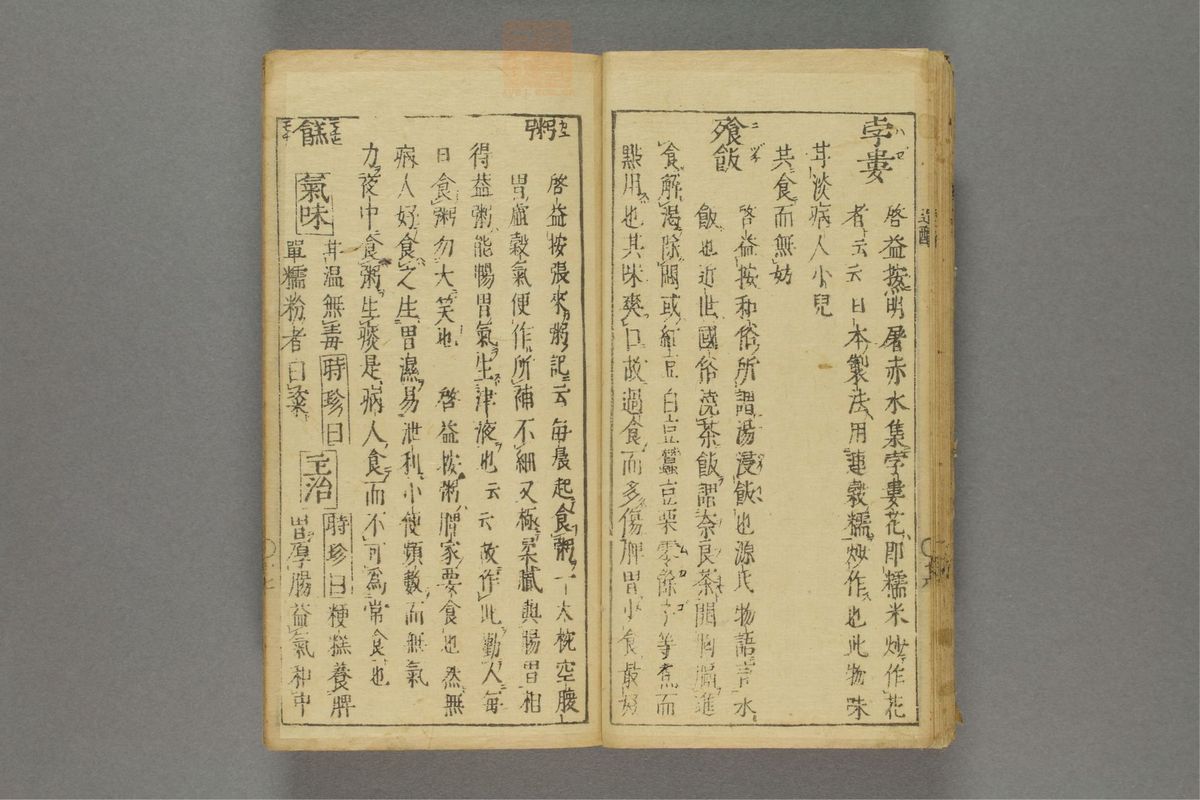 孛婁
啓益按明屠赤水集孛婁花即糯米炒作花
者云云日本製法用連穀糯炒作也此物味
甘淡病人小兒
共食而無妨
飱飯
啓益按和俗所謂湯浸飯也源氏物語言水
飯也近世國俗澆茶飯謂奈良茶開胸膈進
食解渇除悶或紅豆白豆蠶豆栗零餘子等煮而
點用也其味爽口故過食而多傷脾胃少食最好
粥
啓益按張來粥記云毎晨起食粥一大椀空腹
胃虛穀氣便作所補不細又極柔膩與腸胃相
得益粥能暢胃氣生津液也云云故作此勸人毎
日食粥勿大笑也 啓益按粥膈家要食也然無
病人好食之生胃濕易泄利小便頻數而無氣
力夜中食粥生痰是病人食而不可為常食也
餻
氣味
甘温無毒 時珍曰
單糯粉者曰粢
主治
時珍曰 粳糕養脾
胃厚腸益氣和中